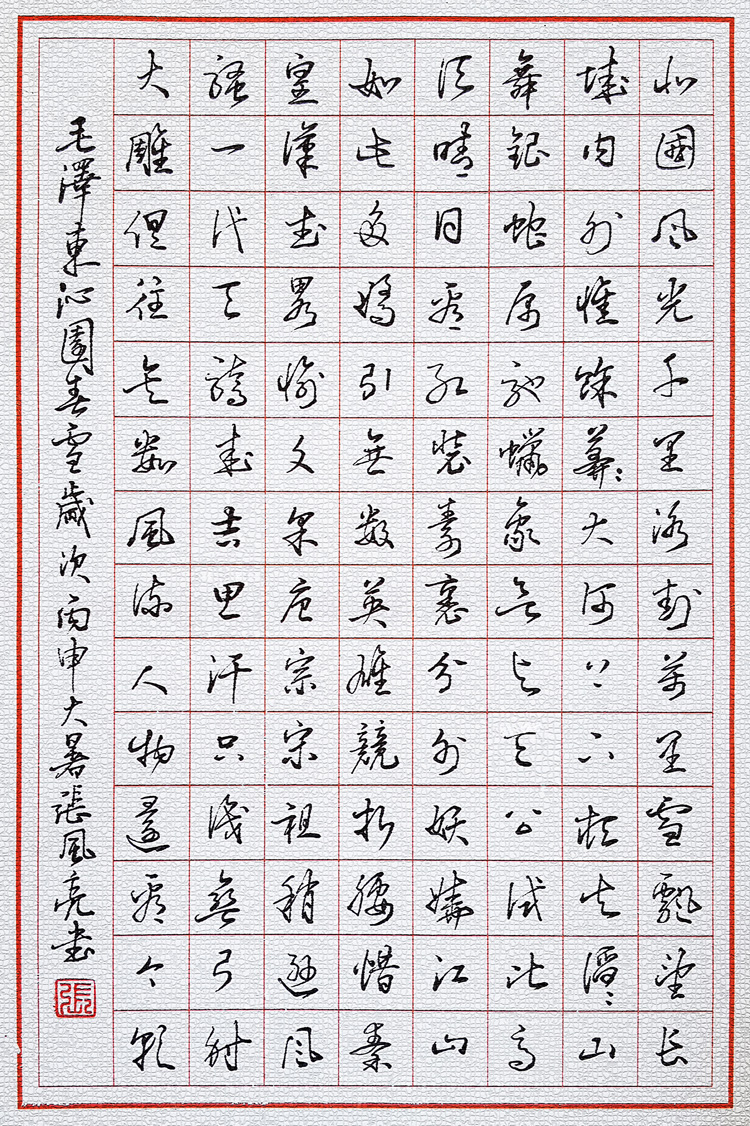 北國风光千里冰封萬里雪飄望长
城内外惟餘莽〻大河上下頓失滔〻山
舞銀蛇原馳蠟象欲与天公試比高
须晴日看红装素裹分外妖嬈江山
如此多嬌引無数英雄競折腰惜秦
皇漢武畧输文采唐宗宋祖稍遜风
騷一代天驕成吉思汗只識彎弓射
大雕俱往矣数風流人物還看今朝
毛澤東沁園春雪歲次丙申大暑張風亮书
張